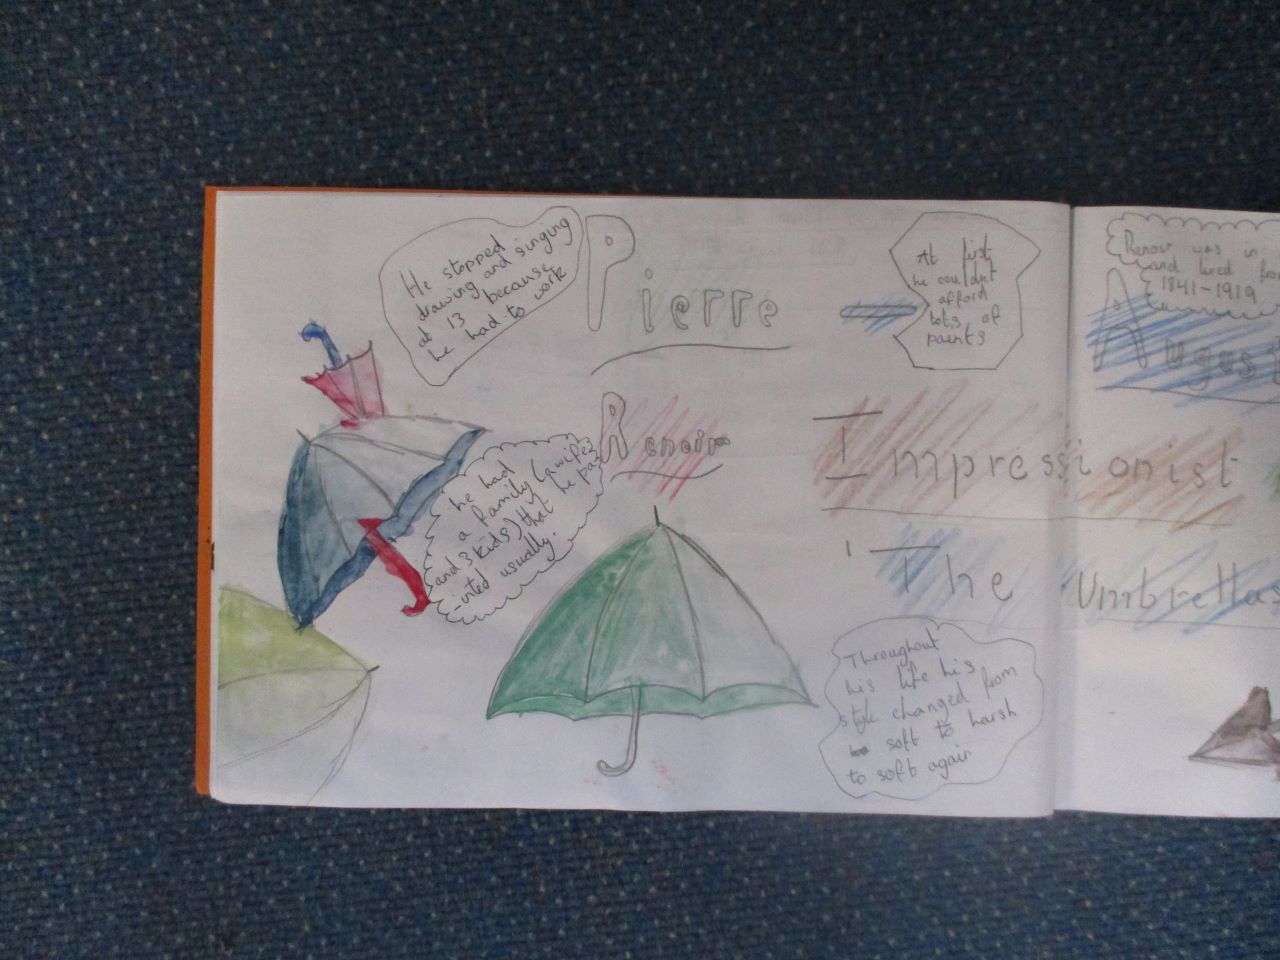 He stopped
drawing and singing
at 13 because
he had to work
Pierre -
At first
he couldn't
afford
lots of
paints
Renoir was in
and lived from
1841-1919
Augus
Renoir
Impressionist
he had
a family (a wife
and 3 kids) that he pa
-inted usually.
'The Umbrellas
Throughout
his life his
style changed from
soft to harsh
to soft again